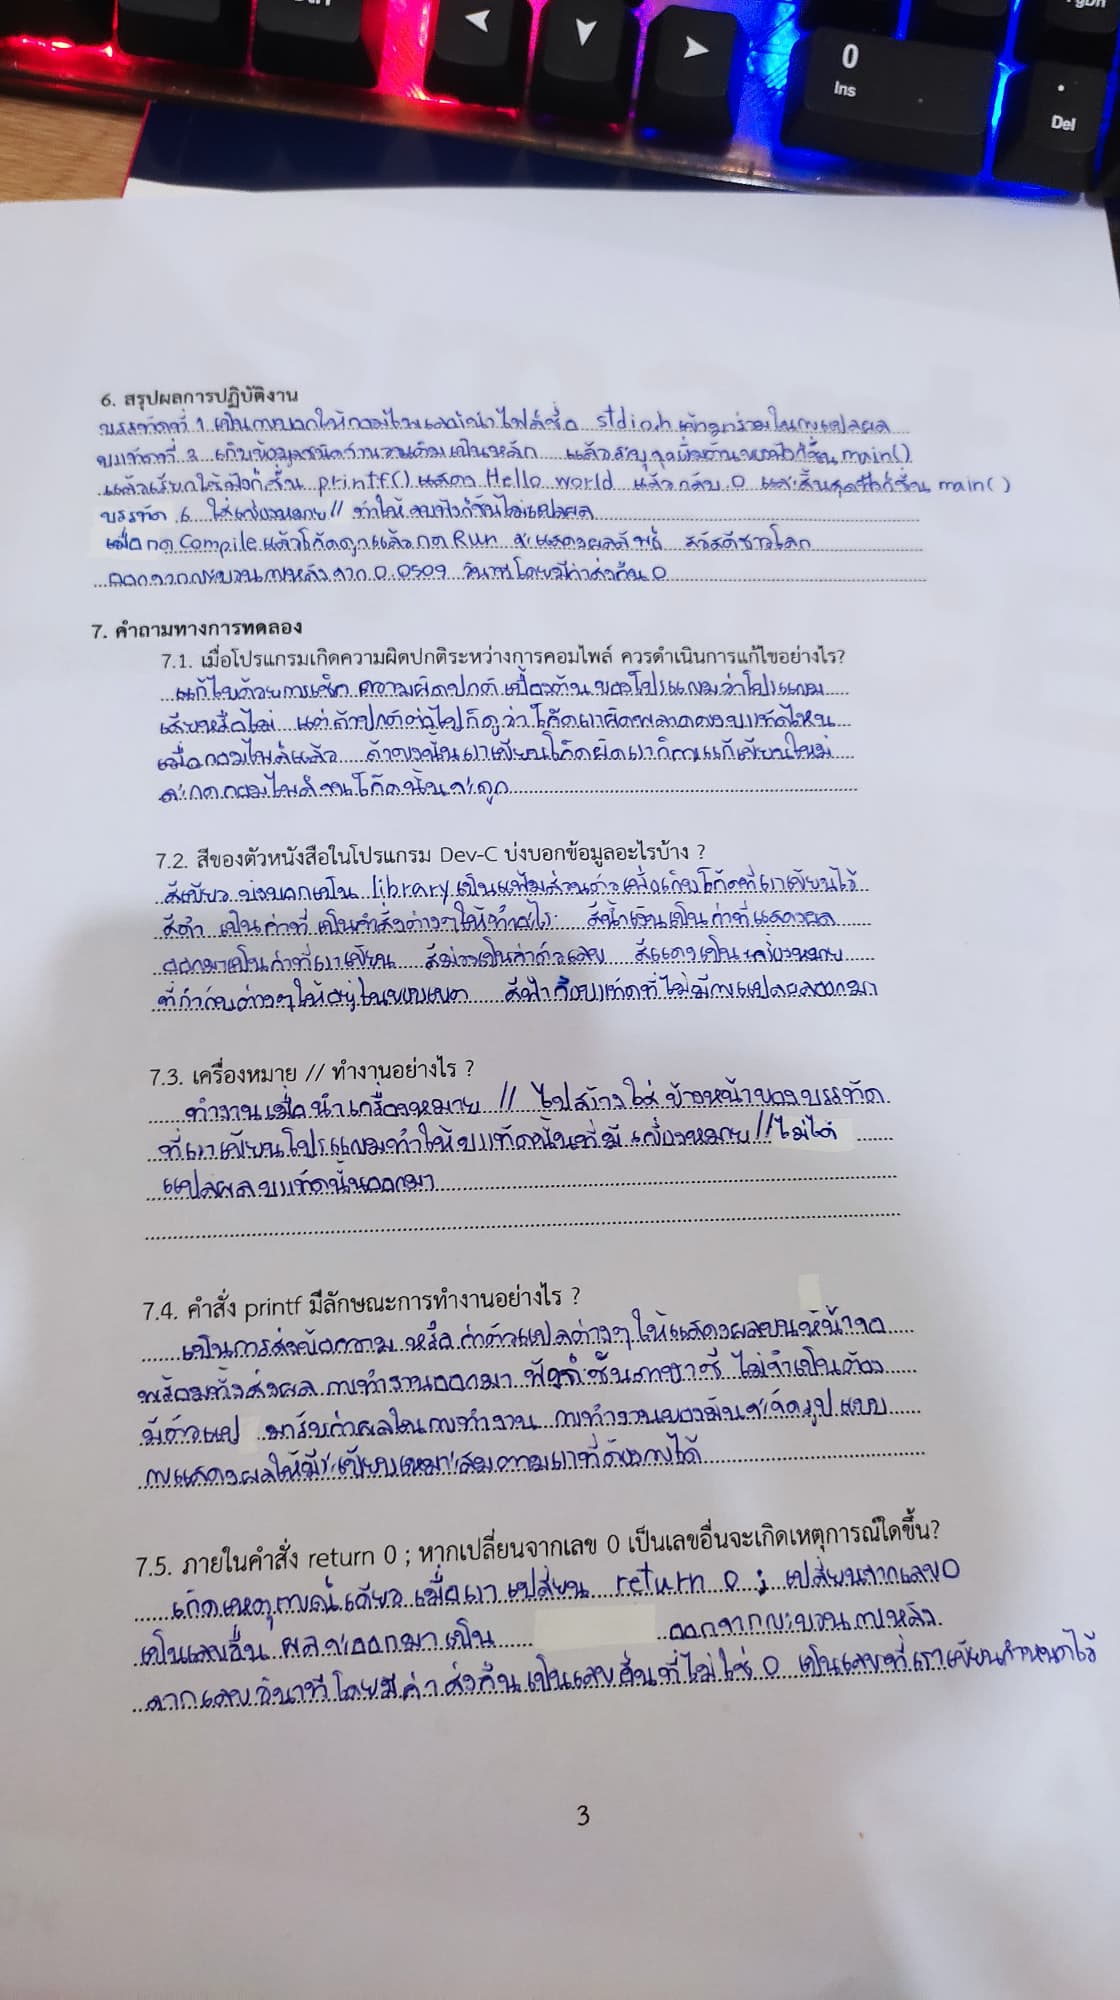 0
Ins
.
Del
6. สรุปผลการปฏิบัติงาน
บรรทัดที่ 1 เป็นการบอกให้คอมไพเลอร์นำไฟล์ชื่อ stdio.h เข้ามาร่วมในการแปลผล
บรรทัดที่ 2 เก็บข้อมูลชนิดจำนวนเต็มเป็นหลัก แล้วระบุจุดเริ่มต้นของฟังก์ชั่น main()
แล้วเรียกใช้ฟังก์ชั่น printf() แสดง Hello world แล้วกลับ 0 และสิ้นสุดฟังก์ชั่น main()
บรรทัด 6 ใส่เครื่องหมาย // ทำให้ ฟังก์ชันไม่แปลผล
เมื่อกด Compile แล้วโค้ดถูกแล้วกด Run จะแสดงผลลัพธ์ สวัสดีชาวโลก
ออกจากกระบวนการหลังจาก 0.0509 วินาทีโดยมีค่าส่งคืน 0
7. คำถามทางการทดลอง
7.1. เมื่อโปรแกรมเกิดความผิดปกติระหว่างการคอมไพล์ ควรดำเนินการแก้ไขอย่างไร?
แก้ไขด้วยการเช็ค ความผิดปกติ เบื้องต้น ของโปรแกรมว่าโปรแกรม
เสียหรือไม่ แต่ถ้าปกติต่อไปก็ดูว่าโค้ดเราผิดพลาดตรงบรรทัดไหน
เมื่อคอมไพล์แล้ว ถ้าตรงนั้นเราเขียนโค้ดผิดเราก็ควรแก้เขียนใหม่
จะกดคอมไพล์จนโค้ดนั้นจะถูก
7.2. สีของตัวหนังสือในโปรแกรม Dev-C บ่งบอกข้อมูลอะไรบ้าง ?
สีเขียว บ่งบอกเป็น library เป็นแฟ้มส่วนตัวเพื่อเก็บโค้ดที่เราเขียนไว้
สีดำ เป็นค่าที่เป็นคำสั่งต่างๆให้ทำอะไร สีน้ำเงินเป็นค่าที่แสดงผล
ออกมาเป็นค่าที่เราเขียน สีม่วงเป็นค่าตัวเลข สีแดงเป็นเครื่องหมาย
ที่กำกับต่างๆให้อยู่ในขอบเขต สีฟ้าคือบรรทัดที่ไม่มีการแปลผลออกมา
7.3. เครื่องหมาย // ทำงานอย่างไร ?
ทำงานเมื่อนำเครื่องหมาย // ไปสร้างใส่ ข้างหน้าของบรรทัด
ที่เราเขียนโปรแกรมทำให้บรรทัดนั้นที่มี เครื่องหมาย // ไม่ได้
แปลผลบรรทัดนั้นออกมา
7.4. คำสั่ง printf มีลักษณะการทำงานอย่างไร ?
เป็นการส่งข้อความ หรือ ค่าตัวแปลต่างๆ ให้แสดงผลบนหน้าจอ
พร้อมทั้งส่งผลการทำงานออกมา ฟังก์ชั่นภาษาซี ไม่จำเป็นต้อง
มีตัวแป มารับค่าผลในการทำงาน การทำงานของมันจะจัดรูปแบบ
การแสดงผลให้มีระเบียบเหมาะสมตามเราที่ต้องการได้
7.5. ภายในคำสั่ง return 0 ; หากเปลี่ยนจากเลข 0 เป็นเลขอื่นจะเกิดเหตุการณ์ใดขึ้น?
เกิดเหตุการณ์เดียว เมื่อเราเปลี่ยน return 0 ; เปลี่ยนจากเลข 0
เป็นเลขอื่น ผลจะออกมาเป็น ออกจากกระบวนการหลัง
จากเลขวินาทีโดยมีค่าส่งคืนเป็นเลขอื่นที่ไม่ใช่ 0 เป็นเลขที่เราเขียนกำหนดไว้
3